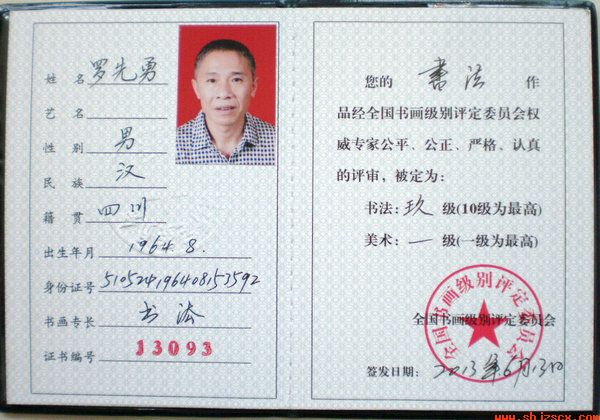 姓 名 罗先勇
艺 名
性 别 男
民 族 汉
籍 贯 四川
出生年月 1964.8.
身份证号 510524196408153592
书画专长 书法
证书编号 13093
您的 书法 作
品经全国书画级别评定委员会权
威专家公平、公正、严格、认真
的评审，被定为：
书法：玖 级(10级为最高)
美术：一 级(一级为最高)
全国书画级别评定委员会
全国书画级别评定委员会
签发日期：2013年6月13日
www.shjzscx.com